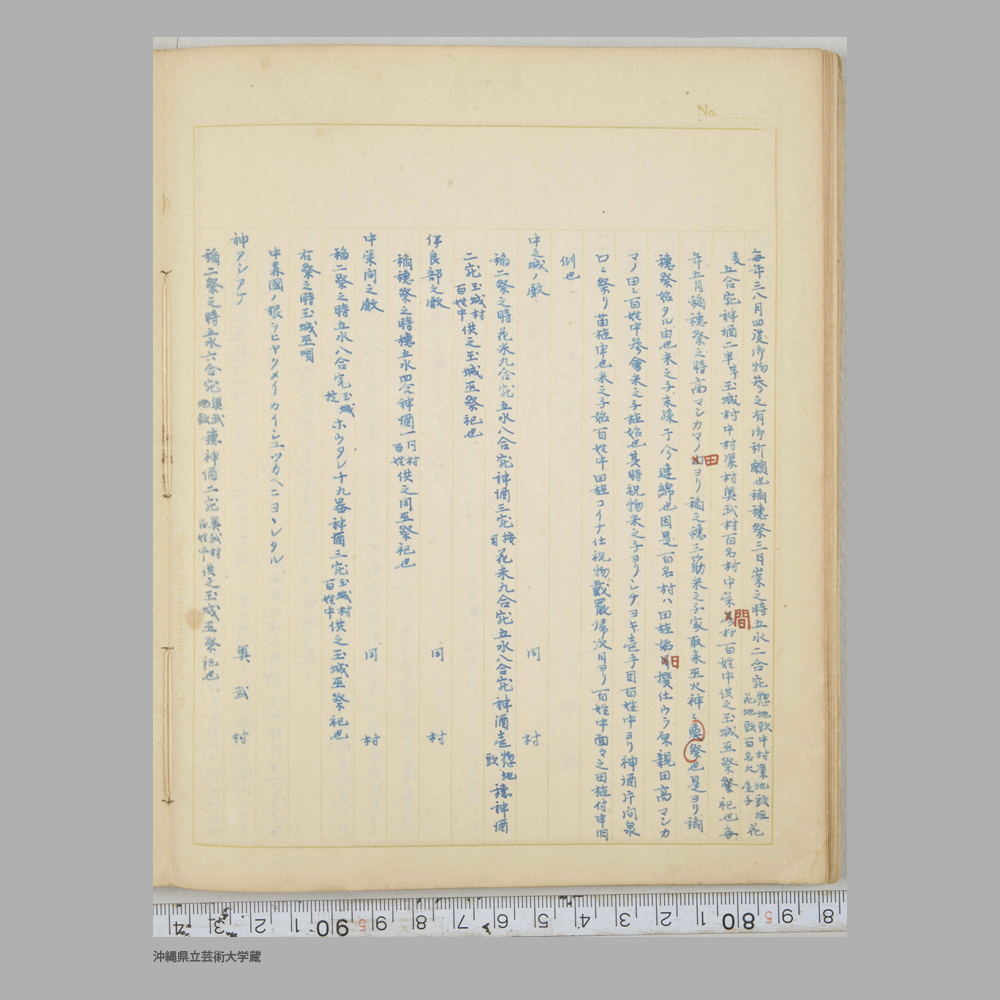 No.
毎年三八月四度御物参之有御祈願也稲穂祭三日崇之時五水二合宛惣地致中村渠地致垣花花地致百名大屋子
麦五合宛神酒二半玉城村中村渠村奥武村百名村中栄間村百姓中供之玉城巫祭祀也毎
年五月稲穂祭之時高マシカマノ田ヨリ稲之穂三筋米之子家取来巫火神ニ祭也是ヨリ稲
穂祭始タル由也米之子末孫于今連綿也因是百名村ハ田植始旧撰仕ウラ架親田高マシカ
マノ田ニ百姓中参會米之子植始也其時祝物米之子ヨリシケヨキ壱手百姓中ヨリ神酒片向泉
口ニ祭リ苗植申也米之子始百姓中田植コイナ仕祝物戴罷帰次日ヨリ百姓中面々之田植付申旧
例也
中之城ノ殿 同村
稲二祭之時花米九合宛五水八合宛神酒三宛按司花米九合宛五水八合宛神酒壱惣地致穂神酒
二宛玉城村百姓中供之玉城巫祭祀也
伊良部之殿 同村
稲穂祭之時穂五水四合神酒一同村百姓供之同巫祭祀也
中栄間之殿 同村
稲二祭之時五水八合宛玉城ホウタレ十九器神酒三宛玉城村百姓中供之玉城巫祭祀也
右祭之時玉城巫唄
中森國ノ根シヒヤクメイカイシユツカヘニヨンタル
神アシアゲ 奥武村
稲二祭之時五水六合宛奥武地致穂神酒二宛奥武村百姓中供之玉城巫祭祀也
8 9 80 1 2 3 4 5 6 7 8 90 1 2 3 4
沖縄県立芸術大学蔵